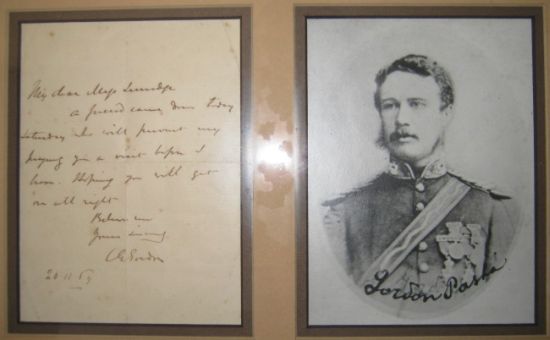 My dear
a friend came down today
Saturday who will prevent my
paying you a visit before I
leave. Hoping you will get
on all right
Believe me
Yours sincerely
C G Gordon
20.11.69
Gordon Pasha